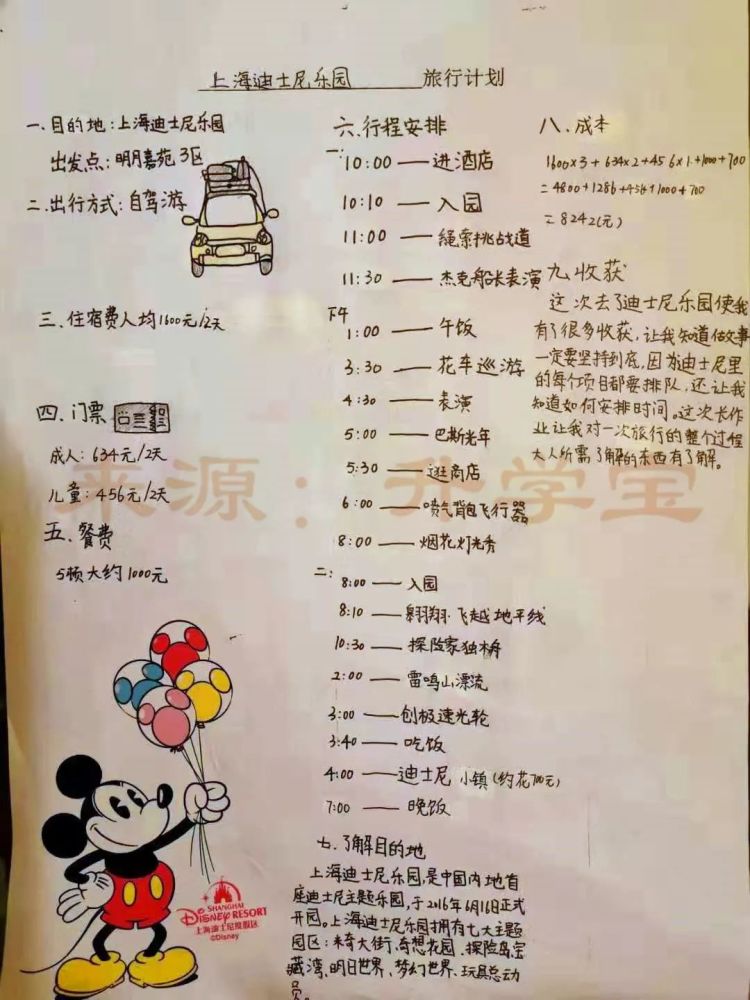 上海迪士尼乐园 旅行计划
一、目的地:上海迪士尼乐园
出发点:明月嘉苑3区
二、出行方式:自驾游
三、住宿费人均1600元/2天
四、门票
成人:634元/2天
儿童:456元/2天
五、餐费
5顿大约1000元
SHANGHAI
DISNEY RESORT
上海迪士尼度假区
©Disney
六、行程安排
一:
10:00——进酒店
10:10——入园
11:00——绳索挑战道
11:30——杰克船长表演
下午
1:00——午饭
3:30——花车巡游
4:30——表演
5:00——巴斯光年
5:30——逛商店
6:00——喷气背包飞行器
8:00——烟花灯光秀
二:
8:00——入园
8:10——翱翔·飞越地平线
10:30——探险家独木舟
2:00——雷鸣山漂流
3:00——创极速光轮
3:40——吃饭
4:00——迪士尼小镇(约花700元)
7:00——晚饭
七、了解目的地
上海迪士尼乐园,是中国内地首
座迪士尼主题乐园,于2016年6月16日正式
开园。上海迪士尼乐园拥有七大主题
园区:米奇大街、奇想花园、探险岛、宝
藏湾、明日世界、梦幻世界、玩具总动
员。
八、成本
1600×3+634×2+456×1+1000+700
=4800+1286+456+1000+700
=8242(元)
九、收获
这次去了迪士尼乐园使我
有了很多收获,让我知道做事
一定要坚持到底,因为迪士尼里
的每个项目都要排队,还让我
知道如何安排时间。这次长作
业让我对一次旅行的整个过程
大人所需了解的东西有了解。
来源:升学宝